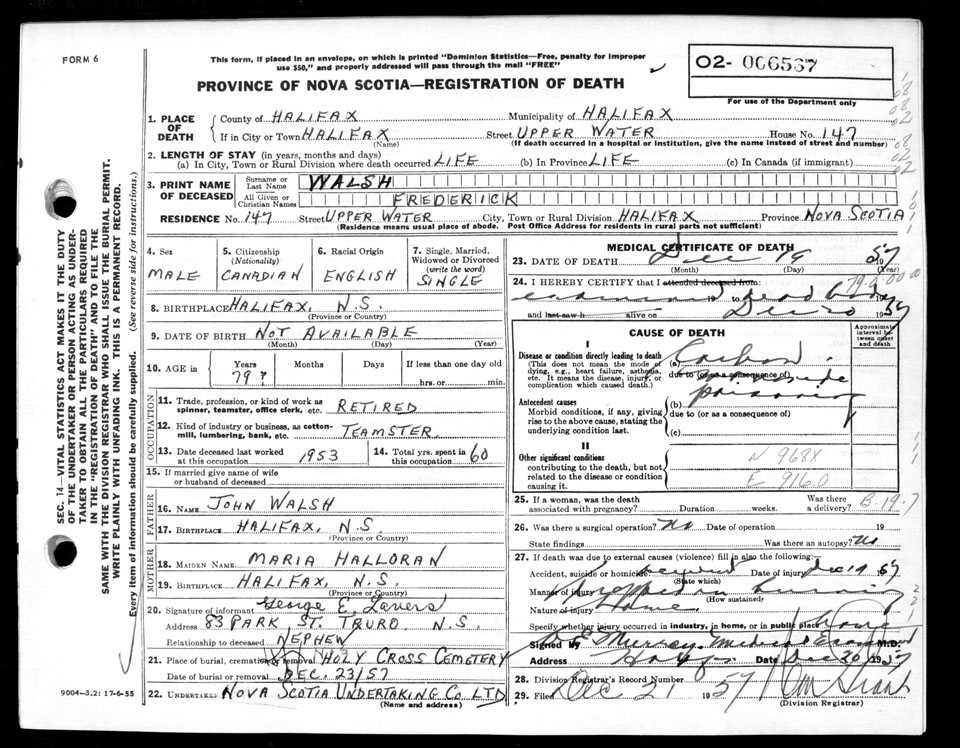 FORM 6
This form, if placed in an envelope, on which is printed "Dominion Statistics—Free, penalty for improper
use $50," and properly addressed will pass through the mail "FREE"
02- 006567
For use of the Department only
PROVINCE OF NOVA SCOTIA—REGISTRATION OF DEATH
SEC. 14—VITAL STATISTICS ACT MAKES IT THE DUTY
OF THE UNDERTAKER OR PERSON ACTING AS UNDER-
TAKER TO OBTAIN ALL THE PARTICULARS REQUIRED
IN THE "REGISTRATION OF DEATH" AND TO FILE THE
SAME WITH THE DIVISION REGISTRAR WHO SHALL ISSUE THE BURIAL PERMIT.
WRITE PLAINLY WITH UNFADING INK. THIS IS A PERMANENT RECORD.
Every item of information should be carefully supplied. (See reverse side for instructions.)
1. PLACE OF DEATH
County of HALIFAX Municipality of HALIFAX
If in City or Town HALIFAX Street UPPER WATER House No. 147
(Name) (If death occurred in a hospital or institution, give the name instead of street and number)
2. LENGTH OF STAY (in years, months and days)
(a) In City, Town or Rural Division where death occurred LIFE (b) In Province LIFE (c) In Canada (if immigrant)
3. PRINT NAME OF DECEASED
Surname or Last Name WALSH
All Given or Christian Names FREDERICK
RESIDENCE No. 147 Street UPPER WATER City, Town or Rural Division HALIFAX Province NOVA SCOTIA
(Residence means usual place of abode. Post Office Address for residents in rural parts not sufficient)
4. Sex
MALE
5. Citizenship
(Nationality)
CANADIAN
6. Racial Origin
ENGLISH
7. Single, Married,
Widowed or Divorced
(write the word)
SINGLE
8. BIRTHPLACE HALIFAX, N.S.
(Province or Country)
9. DATE OF BIRTH NOT AVAILABLE
(Month) (Day) (Year)
10. AGE in
Years Months Days If less than one day old
79? hrs. or min.
OCCUPATION
11. Trade, profession, or kind of work as
spinner, teamster, office clerk, etc. RETIRED
12. Kind of industry or business, as cotton-
mill, lumbering, bank, etc. TEAMSTER
13. Date deceased last worked
at this occupation 1953
14. Total yrs. spent in
this occupation 60
15. If married give name of wife
or husband of deceased
FATHER
16. NAME JOHN WALSH
17. BIRTHPLACE HALIFAX, N.S.
(Province or Country)
MOTHER
18. MAIDEN NAME MARIA HALLORAN
19. BIRTHPLACE HALIFAX, N.S.
(Province or Country)
20. Signature of informant George E.
Address 83 PARK ST. TRURO, N.S.
Relationship to deceased NEPHEW
21. Place of burial, cremation or removal HOLY CROSS CEMETERY
Date of burial or removal DEC. 23/57
22. UNDERTAKER NOVA SCOTIA UNDERTAKING CO. LTD
(Name and address)
9004-3.2: 17-6-55
MEDICAL CERTIFICATE OF DEATH
23. DATE OF DEATH Dec 19 1957
(Month) (Day) (Year)
24. I HEREBY CERTIFY that I attended deceased from:
examined 19 to dead body
and last saw h alive on Dec 20 1957
CAUSE OF DEATH
Approximate
interval be-
tween onset
and death
I
Disease or condition directly leading to death
(This does not mean the mode of
dying, e.g., heart failure, asthenia,
etc. It means the disease, injury, or
complication which caused death.)
(a) Carbon
due to (or as a consequence of)
monoxide
Antecedent causes
Morbid conditions, if any, giving
rise to the above cause, stating the
underlying condition last.
(b) poisoning
due to (or as a consequence of)
(c)
II
Other significant conditions
contributing to the death, but not
related to the disease or condition
causing it.
N 968X
E 916.0
25. If a woman, was the death
associated with pregnancy? Duration weeks.
Was there
a delivery? B-19-7
26. Was there a surgical operation? No Date of operation 19
State findings Was there an autopsy? No
27. If death was due to external causes (violence) fill in also the following:
Accident, suicide or homicide Date of injury Dec 19 1957
(State which)
Manner of injury trapped in burning
(How sustained)
Nature of injury Home
Specify whether injury occurred in industry, in home, or in public place Home
Signed by Murray Medical Examiner M.D.
Address Date Dec 20 1957
28. Division Registrar's Record Number
29. Filed Dec 21 1957
(Division Registrar)